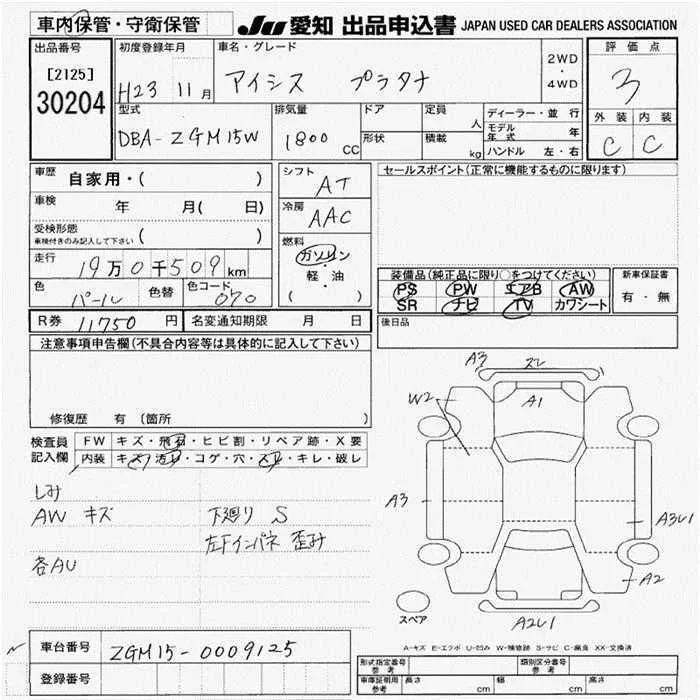 車内保管・守衛保管
JU 愛知 出品申込書 JAPAN USED CAR DEALERS ASSOCIATION
出品番号
[2125]
30204
初度登録年月
H23 11月
車名・グレード
アイシス プラタナ
2WD
・
4WD
評価点
3
外装 内装
C C
型式
DBA-ZGM15W
排気量
1800 CC
ドア
形状
定員
人
積載
kg
ディーラー・並行
モデル年式 年
ハンドル 左・右
車歴
自家用・( )
車検
年 月( 日)
受検形態
車検付きのみ記入して下さい ( )
走行
19万0千509km
色
パール
色替
色コード
070
シフト
AT
冷房
AAC
燃料
ガソリン
・
軽・油
( )
セールスポイント(正常に機能するものに限ります)
装備品(純正品に限り○をつけてください)
PS PW エアB AW
SR ナビ TV カワシート
新車保証書
有・無
R券 11750 円
名変通知期限 月 日
後日品
注意事項申告欄(不具合内容等は具体的に記入して下さい)
修復歴 有 (箇所 )
検査員記入欄
FW キズ・飛石・ヒビ割・リペア跡・X要
内装 キズ・汚レ・コゲ・穴・スレ・キレ・破レ
しみ
AW キズ
下廻り S
左下インパネ 歪み
各AU
A3
スレ
W2
A1
A3
A3U1
A2
A2U1
スペア
A-キズ E-エクボ U-凹み W-補修跡 S-サビ C-腐食 XX-交換済
車台番号 ZGM15-0009125
登録番号
形式指定番号
参考
類別区分番号
参考
車庫証明用
参考
長さ cm 幅 cm 高さ cm